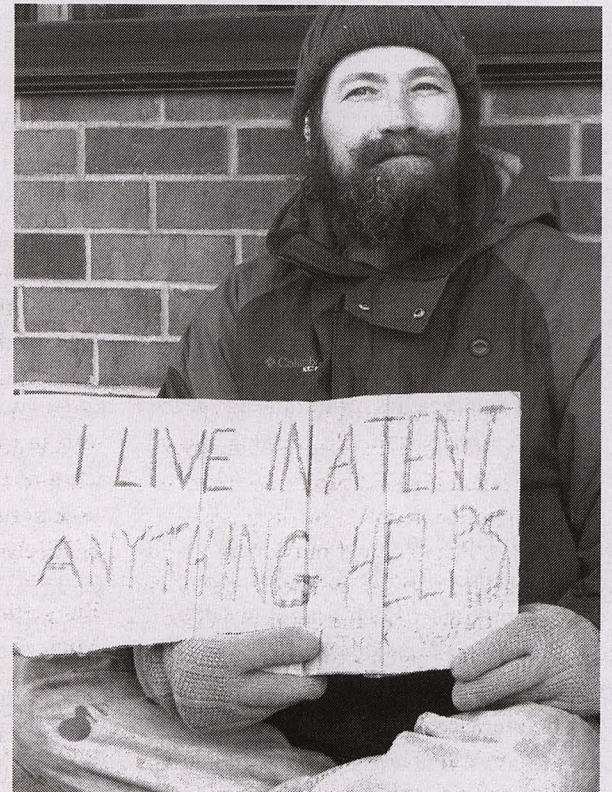 Columbia
I LIVE IN A TENT.
ANYTHING HELPS